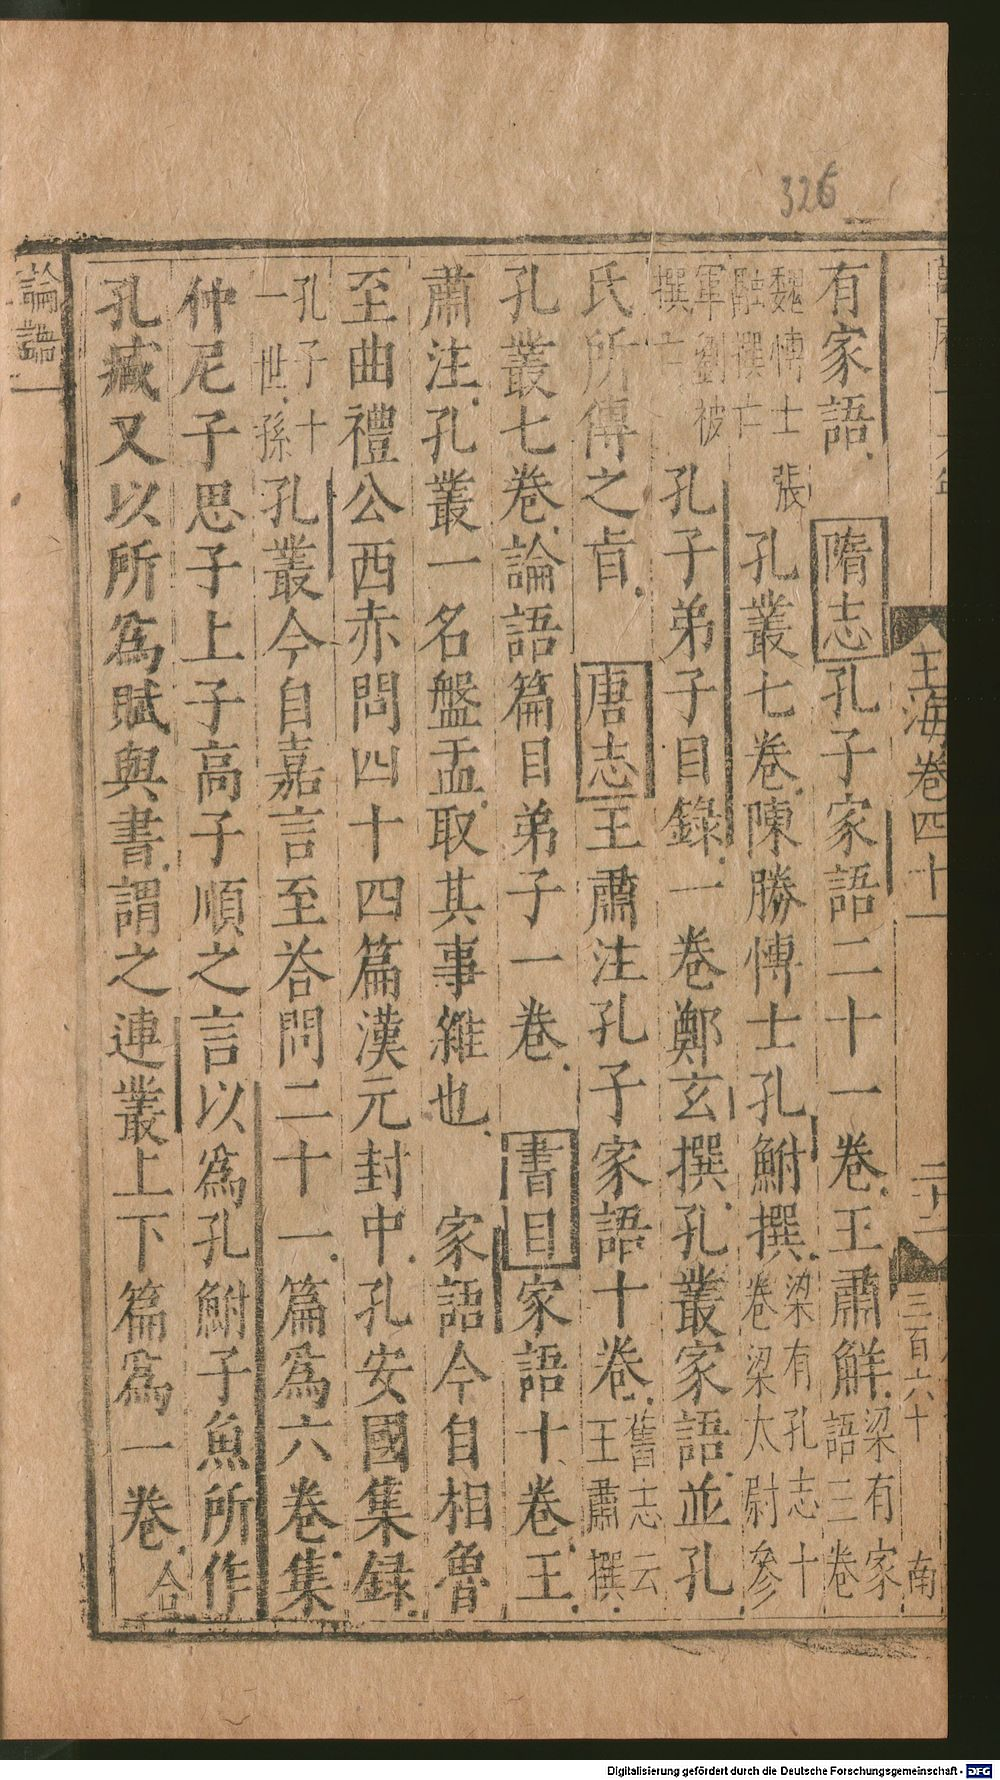 玉海卷四十一 二十二 三百六十 南
有家語 隋志孔子家語二十一卷王肅解梁有家語三卷
魏愽士張融撰亡孔叢七卷陳勝愽士孔鮒撰梁有孔志十卷梁太尉參
軍劉被撰亡孔子弟子目録一卷鄭玄撰孔叢家語並孔
氏所傳之旨 唐志王肅注孔子家語十卷舊志云王肅撰
孔叢七卷論語篇目弟子一卷 書目家語十卷王
肅注孔叢一名盤盂取其事雜也 家語今自相魯
至曲禮公西赤問四十四篇漢元封中孔安國集録
孔子十一世孫孔叢今自嘉言至荅問二十一篇爲六卷集
仲尼子思子上子高子順之言以爲孔鮒子魚所作
孔臧又以所爲賦與書謂之連叢上下篇爲一卷合
論語
326
Digitalisierung gefördert durch die Deutsche Forschungsgemeinschaft - DFG